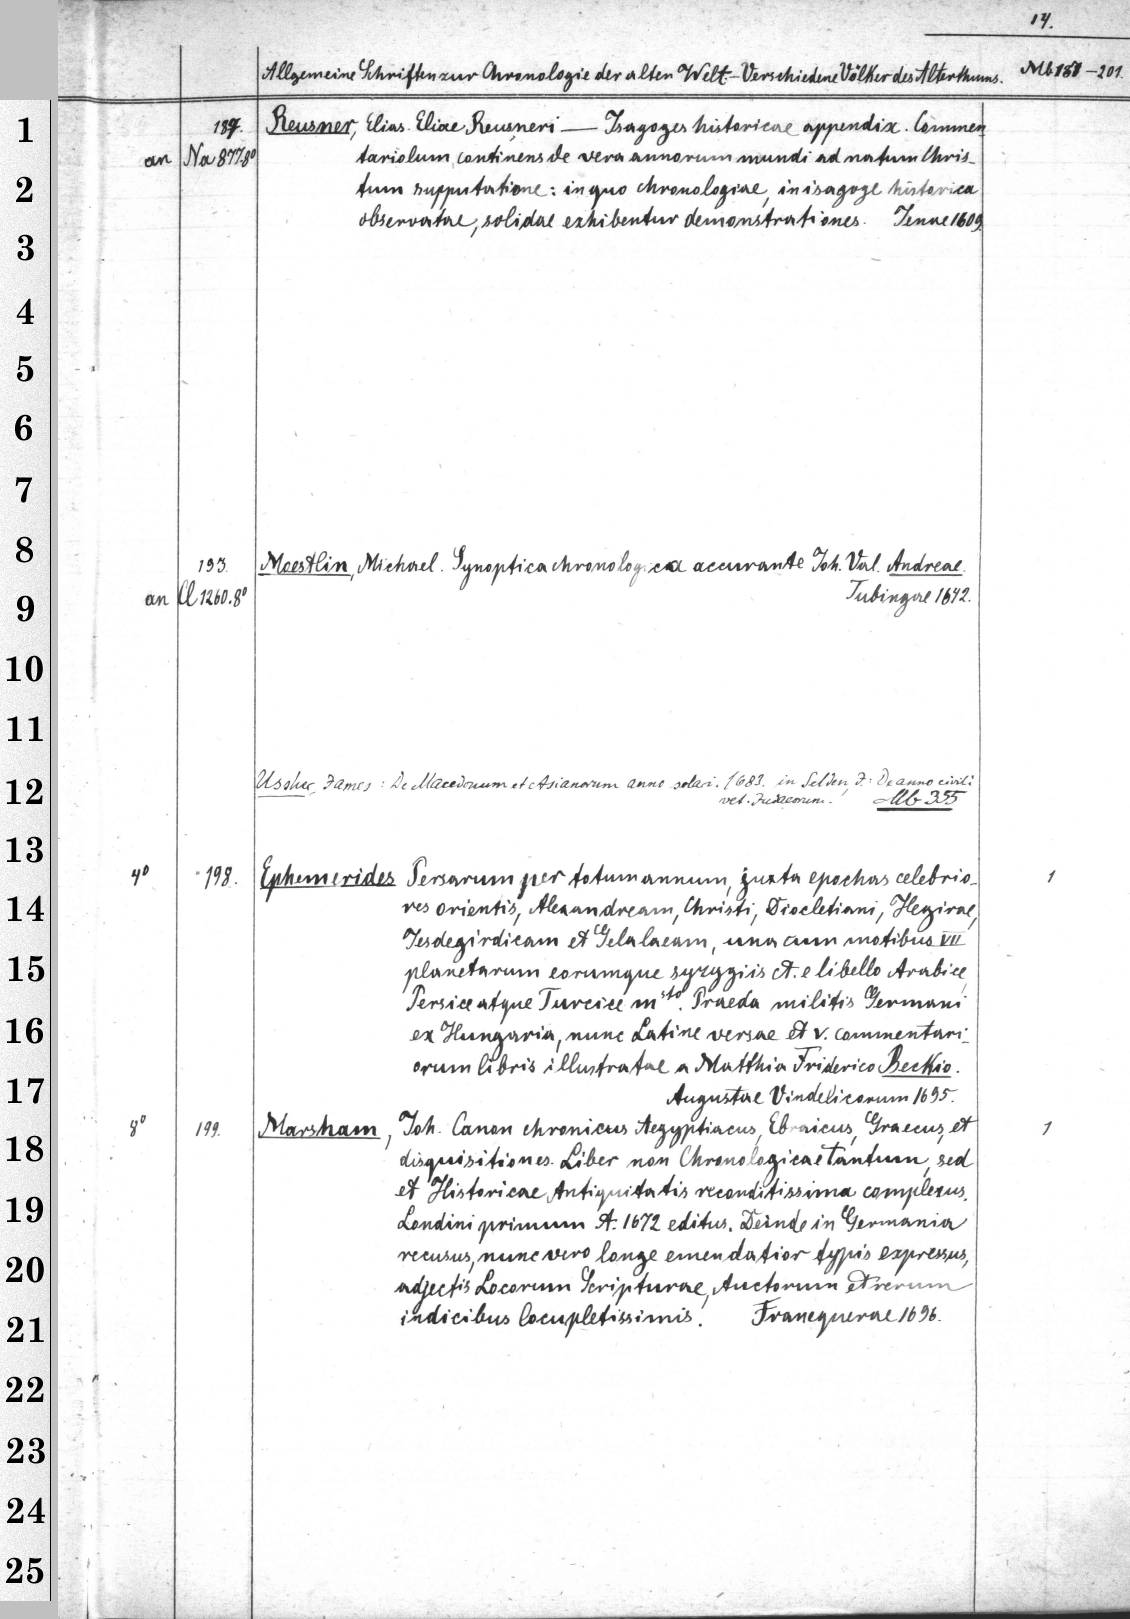 14.
Allgemeine Schriften zur Chronologie der alten Welt - Verschiedene Völker des Alterthums. Mb 187-201.
1
187. Reusner, Elias. Eliae Reusneri — Isagoges historicae appendix. Commen
an Na 877.8° tariolum continens de vera annorum mundi ad natum Chris-
2
tum supputatione: in quo chronologiae, in isagoge historica
observatae, solidae exhibentur demonstrationes. Jenae 1609.
3
4
5
6
7
8
193. Moestlin, Michael. Synoptica chronologica accurante Joh. Val. Andreae.
9
an Cl 1260.8° Tubingae 1642.
10
11
12
Ussher, James: De Macedonum et Asianorum anno solari. 1683. in Selden, J.: De anno civili
vet. Judaeorum. Mb 355
13
4° 198. Ephemerides Persarum per totum annum, juxta epochas celebrio- 1
14
res orientis, Alexandream, Christi, Diocletiani, Hegirae,
Jesdegirdicam et Gelalaeam, una cum motibus VII
15
planetarum eorumque syzygiis et. e libello Arabice,
Persice atque Turcice msto. Praeda militis Germani
16
ex Hungaria, nunc Latine versae et v. commentari-
orum libris illustratae a Matthia Friderico Beckio.
17
Augustae Vindelicorum 1695.
8° 199. Marsham, Joh. Canon chronicus Aegyptiacus, Ebraicus, Graecus, et 1
18
disquisitiones. Liber non Chronologicae tantum, sed
et Historicae Antiquitatis reconditissima complexus.
19
Londini primum A. 1672 editus. Deinde in Germania
recusus, nunc vero longe emendatior typis expressus,
20
adjectis Locorum Scripturae, Auctorum et rerum
indicibus locupletissimis. Franequerae 1696.
21
22
23
24
25